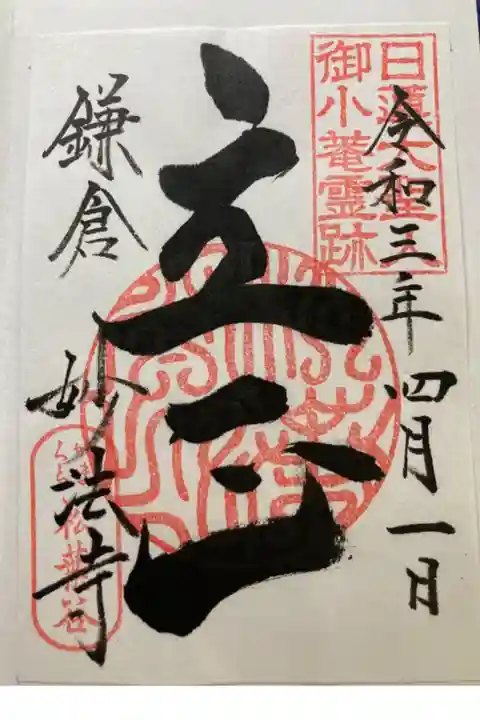 日蓮大聖人
御小菴霊跡
令和三年四月一日
立正
鎌倉
妙法寺
かまくら
松葉谷